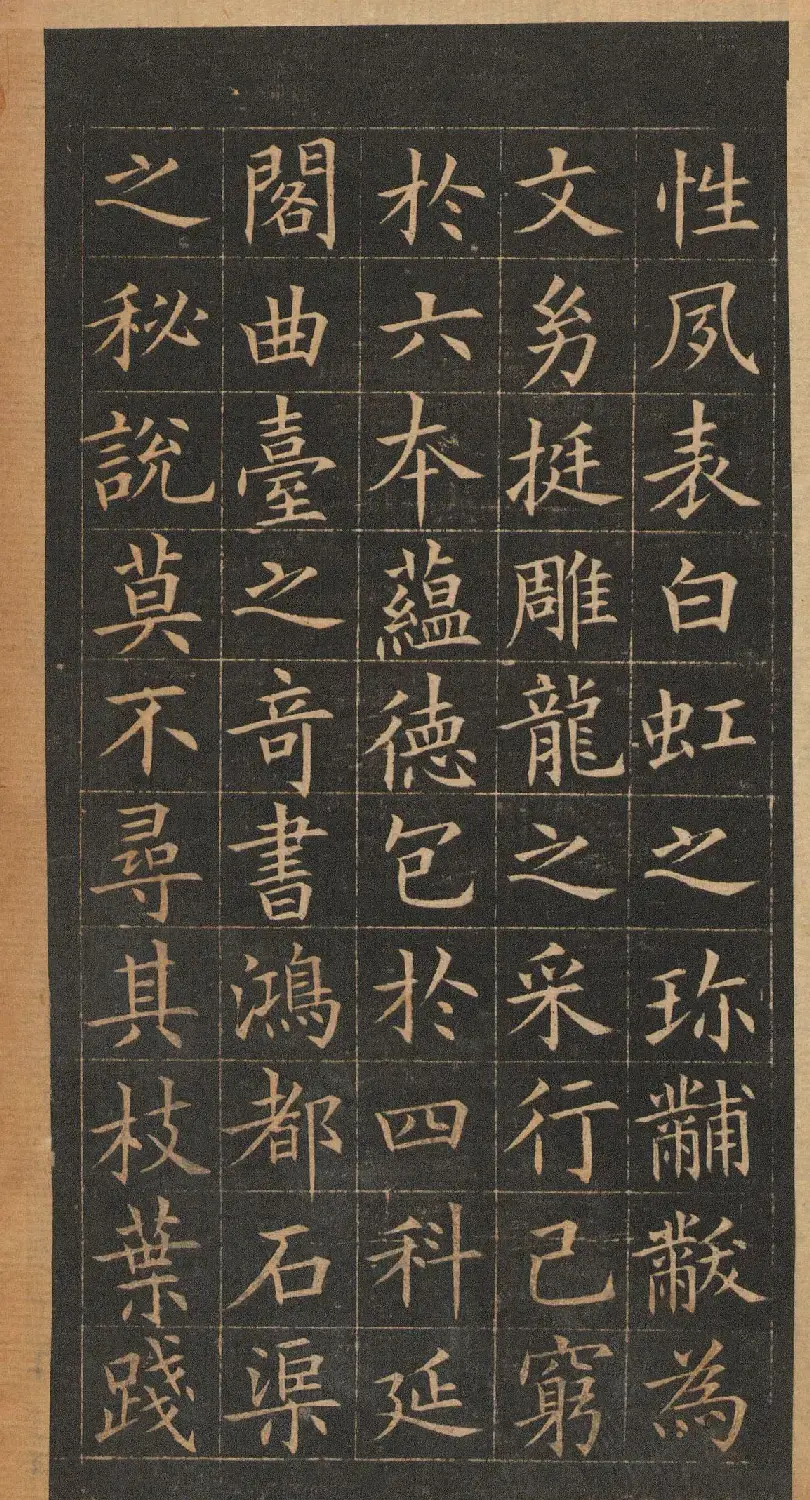 性夙表白虹之珎黼黻為
文幼挺雕龍之采行己窮
於六本蘊徳包於四科延
閣曲臺之奇書鴻都石渠
之秘說莫不尋其枝葉踐